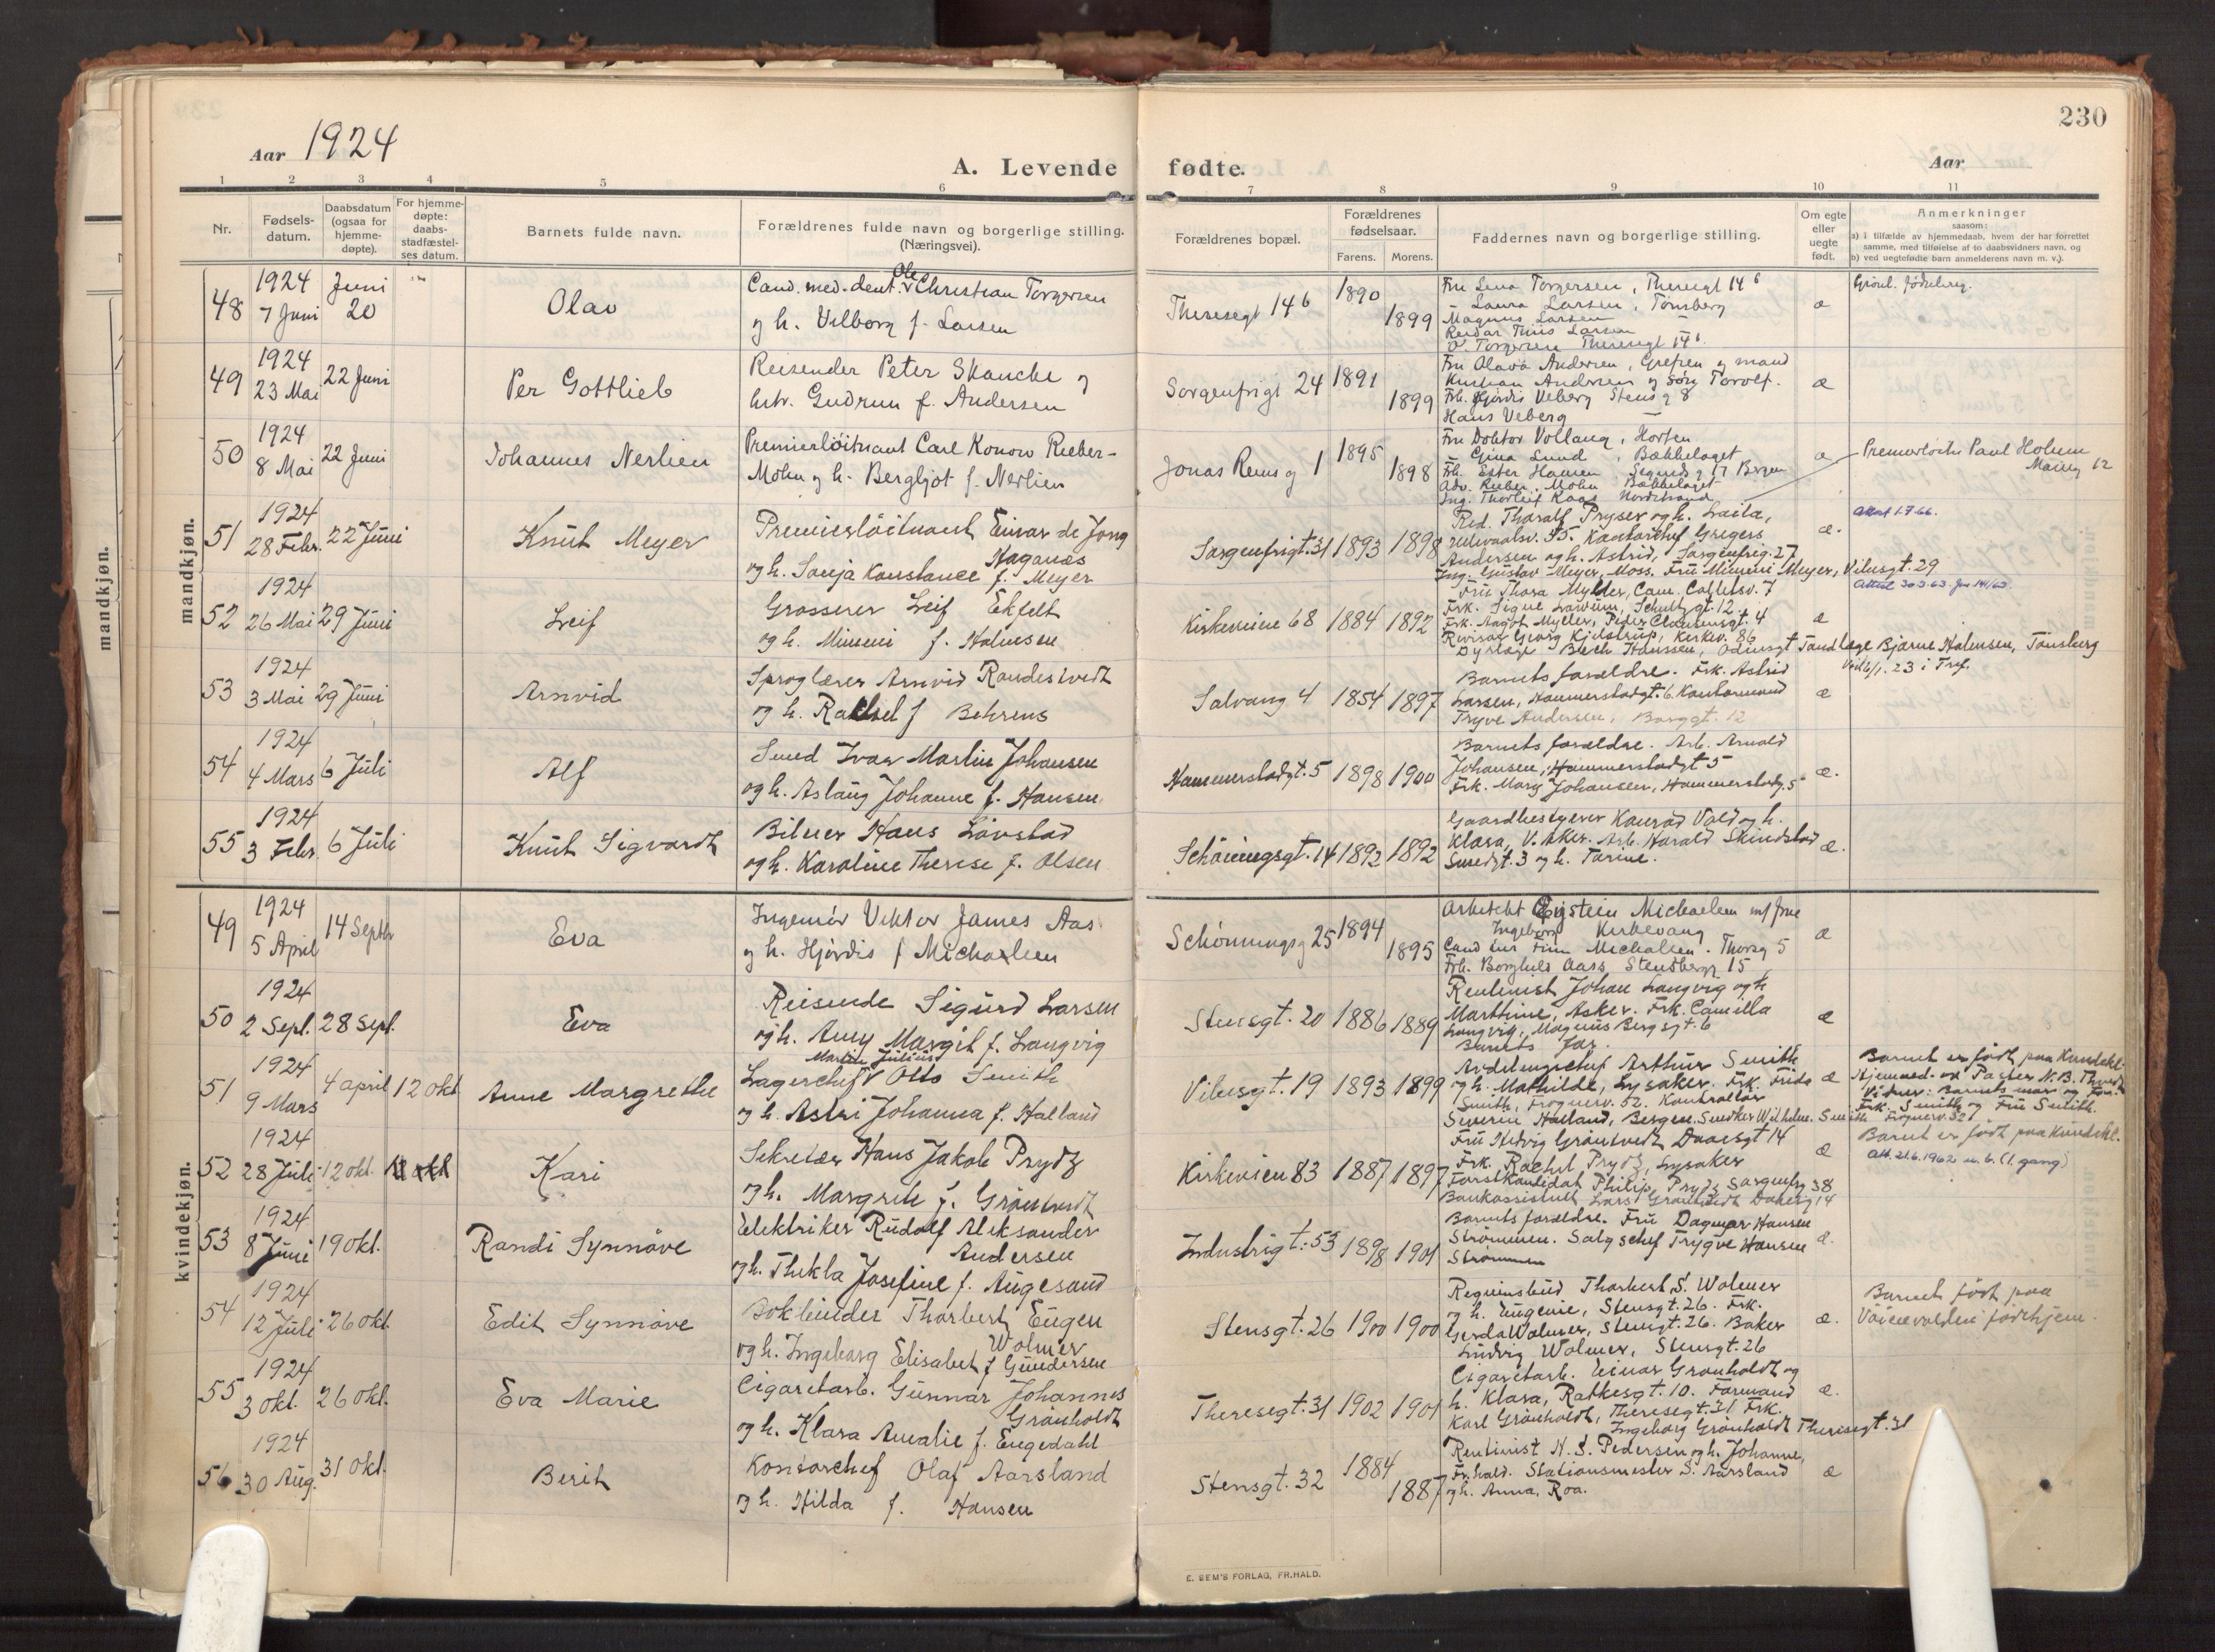 230
Aar 1924
A. Levende fødte.
Aar
1 2 3 4 5 6 7 8 9 10 11
Nr.
Fødsels-
datum.
Daabsdatum
(ogsaa for
hjemme-
døpte).
For hjemme-
døpte:
daabs-
stadfæstel-
ses datum.
Barnets fulde navn.
Forældrenes fulde navn og borgerlige stilling.
(Næringsvei).
Forældrenes bopæl.
Forældrenes
fødselsaar.
Farens. Morens.
Faddernes navn og borgerlige stilling.
Om egte
eller
uegte
født.
Anmerkninger
saasom:
a) i tilfælde av hjemmedaab, hvem der har forrettet
samme, med tilføielse af to daabsvidners navn, og
b) ved uegtefødte barn anmelderens navn m. v.).
mandkjøn.
mandkjøn.
48
1924
7 Juni
Juni
20
Olav
Cand. med. dent. Ole Christian Torgersen
og h. Valborg f. Larsen
Theresegt 14 b
1890
1899
Fru Lena Torgersen, Theresegt 14 b
- Laura Larsen, Tønsberg
Magnus Larsen
Reidar Thiis Larsen
O. Torgersen Theresegt 14 b.
æ
49
1924
23 Mai
22 Juni
Per Gottlieb
Reisender Peter Skanche og
hstr. Gudrun f. Andersen
Sorgenfrigt 24
1891
1899
Fru Olava Andersen, Grefsen og mand
Kristian Andersen og søn Torolf.
Frk. Hjørdis Veberg Stensg 8
Hans Veberg
æ
50
1924
8 Mai
22 Juni
Johannes Nerlien
Premierløitnant Carl Konow Rieber-
Mohn og h. Bergljot f. Nerlien
Jonas Reins g 1
1895
1898
Fru Doktor Vollang, Horten
- Gina Lund, Bækkelaget
Frk. Ester Hansen Sigurds g 17 Bergen
Adv. Rieber-Mohn Bækkelaget
Ing. Thorleif Kaas Nordstrand
æ
Premierløitn Paul Holum
51
1924
28 Febr.
22 Juni
Knut Meyer
Premierløitnant Einar de Jong
Haganæs
og h. Sonja Konstance f. Meyer
Sorgenfrigt. 31
1893
1898
Red. Tharalf Pryser og h. Laila,
Ullevaalsv. 35. Kontorchef Gregers
Andersen og h. Astrid, Sorgenfrig. 27
Ing. Gustav Meyer, Moss. Fru Mimmi Meyer, Vibesgt. 29
æ.
Attest 1.7.66.
52
1924
26 Mai
29 Juni
Leif
Grosserer Leif Ekfelt
og h. Mimmi f. Halmsen
Kirkeveien 68
1884
1892
Fru Thora Myhler, Cam. Colletsv. 7
Frk. Signe Larsen, Schultzgt. 12.
Frk. Aagot Myhler, Peder Claussønsgt. 4
Revisor Georg Kjelstrup, Kirkev. 86
Dyrlæge Bech Hanssen, Odinsgt Tandlæge Bjarne Halmsen, Tønsberg
æ
53
1924
3 Mai
29 Juni
Arnvid
Sproglærer Arnvid Randestvedt
og h. Rakel f Behrens
Solvang 4
1854
1897
Barnets forældre. Frk. Astrid
Larsen, Hammerstadgt. 6. Kontormand
Trygve Andersen, Borggt. 12
æ
54
1924
4 Mars
6 Juli
Alf
Smed Ivar Martin Johansen
og h. Aslaug Johanne f. Hansen
Hammerstadgt. 5
1898
1900
Barnets forældre. Arb. Arnold
Johansen, Hammerstadgt 5
Frk. Mary Johansen, Hammerstadg. 5
æ.
55
1924
3 Febr.
6 Juli
Knut Sigvardt
Bileier Hans Løvstad
og h. Karoline Therese f. Olsen
Schøningsgt. 14
1892
1892
Gaardbestyrer Konrad Vold og h.
Klara, V. Aker. Arb. Harald Skindstad
Smedgt. 3 og h. Tarine.
æ.
kvindekjøn.
49
1924
5 April
14 Septbr
Eva
Ingeniør Viktor James Aas
og h. Hjørdis f Michaelsen
Schønningsg 25
1894
1895
Arkitekt Øystein Michaelsen m/ frue
Ingeborg Kirkevang
Cand jur Finn Michalsen. Thorsg 5
Frk. Borghild Aass Stensberg 15
æ
50
1924
2 Sept.
28 Sept.
Eva
Reisende Sigurd Larsen
og h. Amy Margit f. Langvig
Stensgt. 20
1886
1889
Rentenist Johan Langvig og h
Marthine, Asker. Frk. Camilla
Langvig, Magnus Bergsgt. 6
Barnets far.
æ
51
1924
9 Mars
4 april
12 okt
Anne Margrethe
Martin Julius
Lagerchef Otto Smith
og h. Astri Johanna f. Halland
Vibesgt. 19
1893
1899
Avdelingschef Arthur Smith
og h. Mathilde, Lysaker. Frk. Frida
Smith, Frognerv. 52. Kontrollør
Severin Halland, Bergen. Snedker Wilhelm Smith Frognerv. 52
æ
Barnet er født paa Kvindekl.
Hjemmed. av Pastor N. B. Thvedt
Vidner: Barnets mor og Fru
Frk. Smith og Fru Smith.
52
1924
28 Juli
12 okt.
Kari
Sekretær Hans Jakob Prydz
og h. Margrete f. Grøntvedt
Kirkeveien 83
1887
1897
Fru Hedvig Grøntvedt Daaesgt 14
Frk. Rachel Prydz, Lysaker
Forstkandidat Philip Prydz Sorgenfrig 38
Bankassistent Lars Grøntvedt Daaesg 14
æ
Barnet er født paa Kvindekl.
Att. 21.6.1962 u. b. (1. gang)
53
1924
8 Juni
19 okt.
Randi Synnøve
Elektriker Rudolf Aleksander
Andersen
og h. Thekla Josefine f. Augesand
Industrigt. 53
1898
1901
Barnets forældre. Fru Dagmar Hansen
Strømmen. Salgschef Trygve Hansen
Strømmen
æ.
54
1924
12 Juli
26 okt.
Edit Synnøve
Bokbinder Thorbert Eugen
Wolmer
og h. Ingeborg Elisabet f Gundersen
Stensgt. 26
1900
1900
Regningsbud Thorbert S. Wolmer
og h. Eugenie, Stensgt. 26. Frk.
Gerda Wolmer, Stensgt. 26. Baker
Ludvig Wolmer, Stensgt. 26
æ.
Barnet født paa
55
1924
3 okt.
26 okt.
Eva Marie
Cigaretarb. Gunnar Johannes
Grønholdt
og h. Klara Amalie f. Engedahl
Theresegt. 31
1902
1901
Cigaretarb. Einar Grønholdt og
h. Klara, Rathkesgt. 10. Formand
Karl Grønholdt, Theresegt. 31 Frk.
Ingeborg Grønholdt Theresegt. 31
æ.
56
1924
30 Aug.
31 okt.
Berit
Kontorchef Olaf Aarsland
og h. Hilda f. Hansen
Stensgt. 32
1884
1887
Rentenist N. S. Pedersen og h. Johanne,
Fr.hald. Stationsmester S. Aarsland
og h. Anna, Roa.
æ
E. SEM'S FORLAG, FR.HALD.